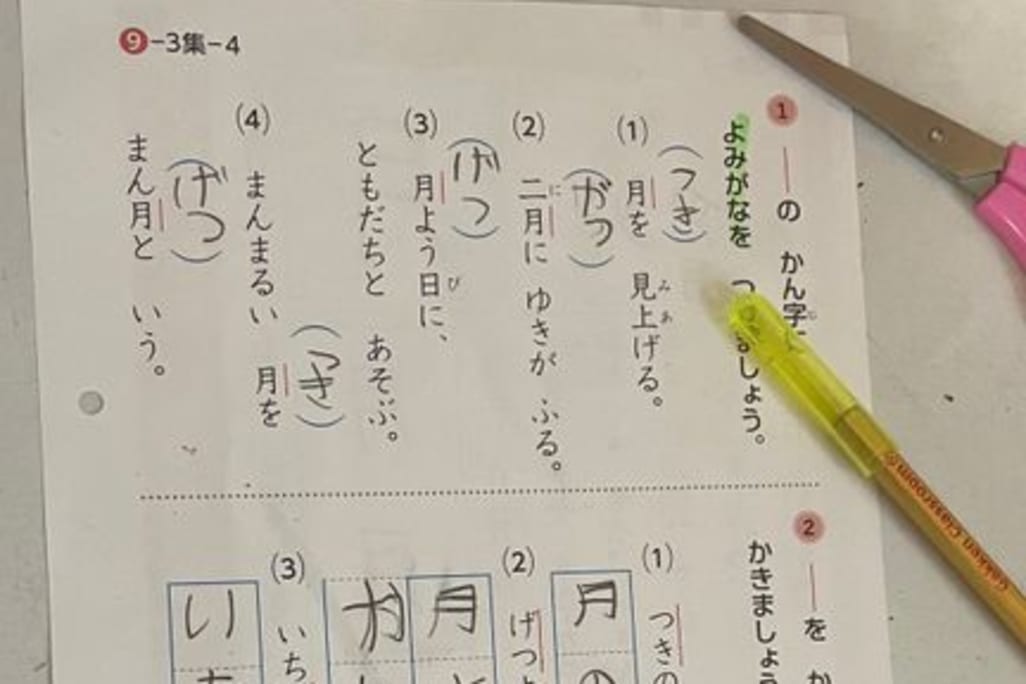 9-3集-4
1 ―の かん字に
よみがなを つけましょう。
(1) 月を 見上げる。
みあ
(つき)
(2) 二月に ゆきが ふる。
に
(がつ)
(3) 月よう日に、
び
(げつ)
ともだちと あそぶ。
(4) まんまるい 月を
(つき)
まん月と いう。
(げつ)
2 ―を か
かきましょう
(1) つきの
月の
(2) げつ
月
(3) いち
い
Gakken Classroom